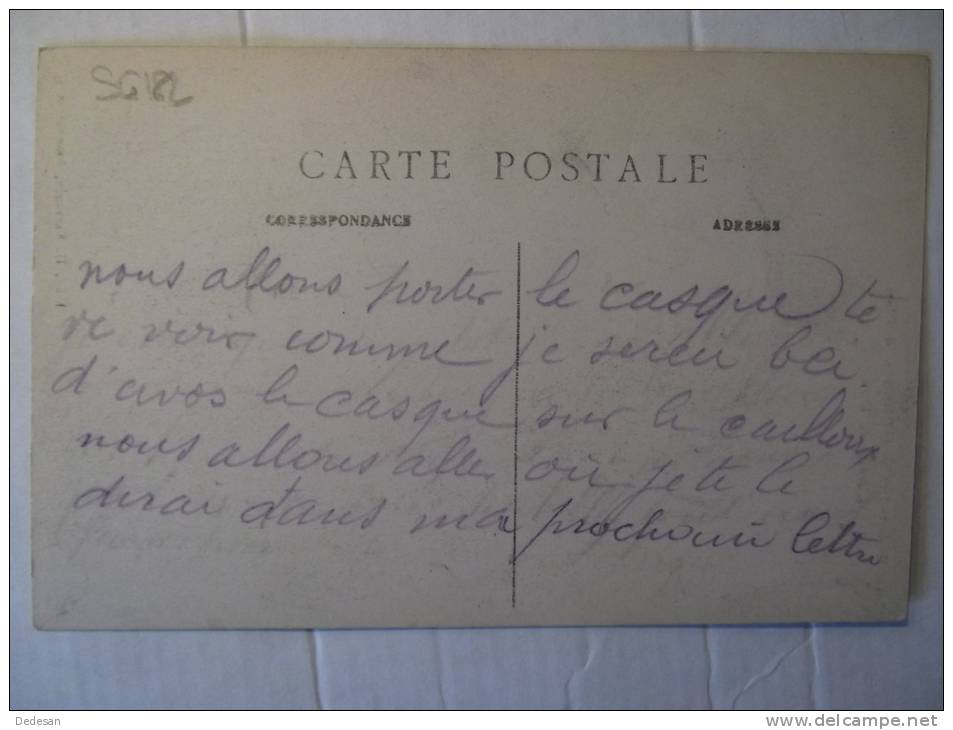 SG182
CARTE POSTALE
CORRESPONDANCE
ADRESSE
nous allons porter le casque te
ve voir comme je serei
d'avos le casque sur le cailloux
nous allons aller où je te le
dirai dans ma prochain lettre
Dedesan
www.delcampe.net